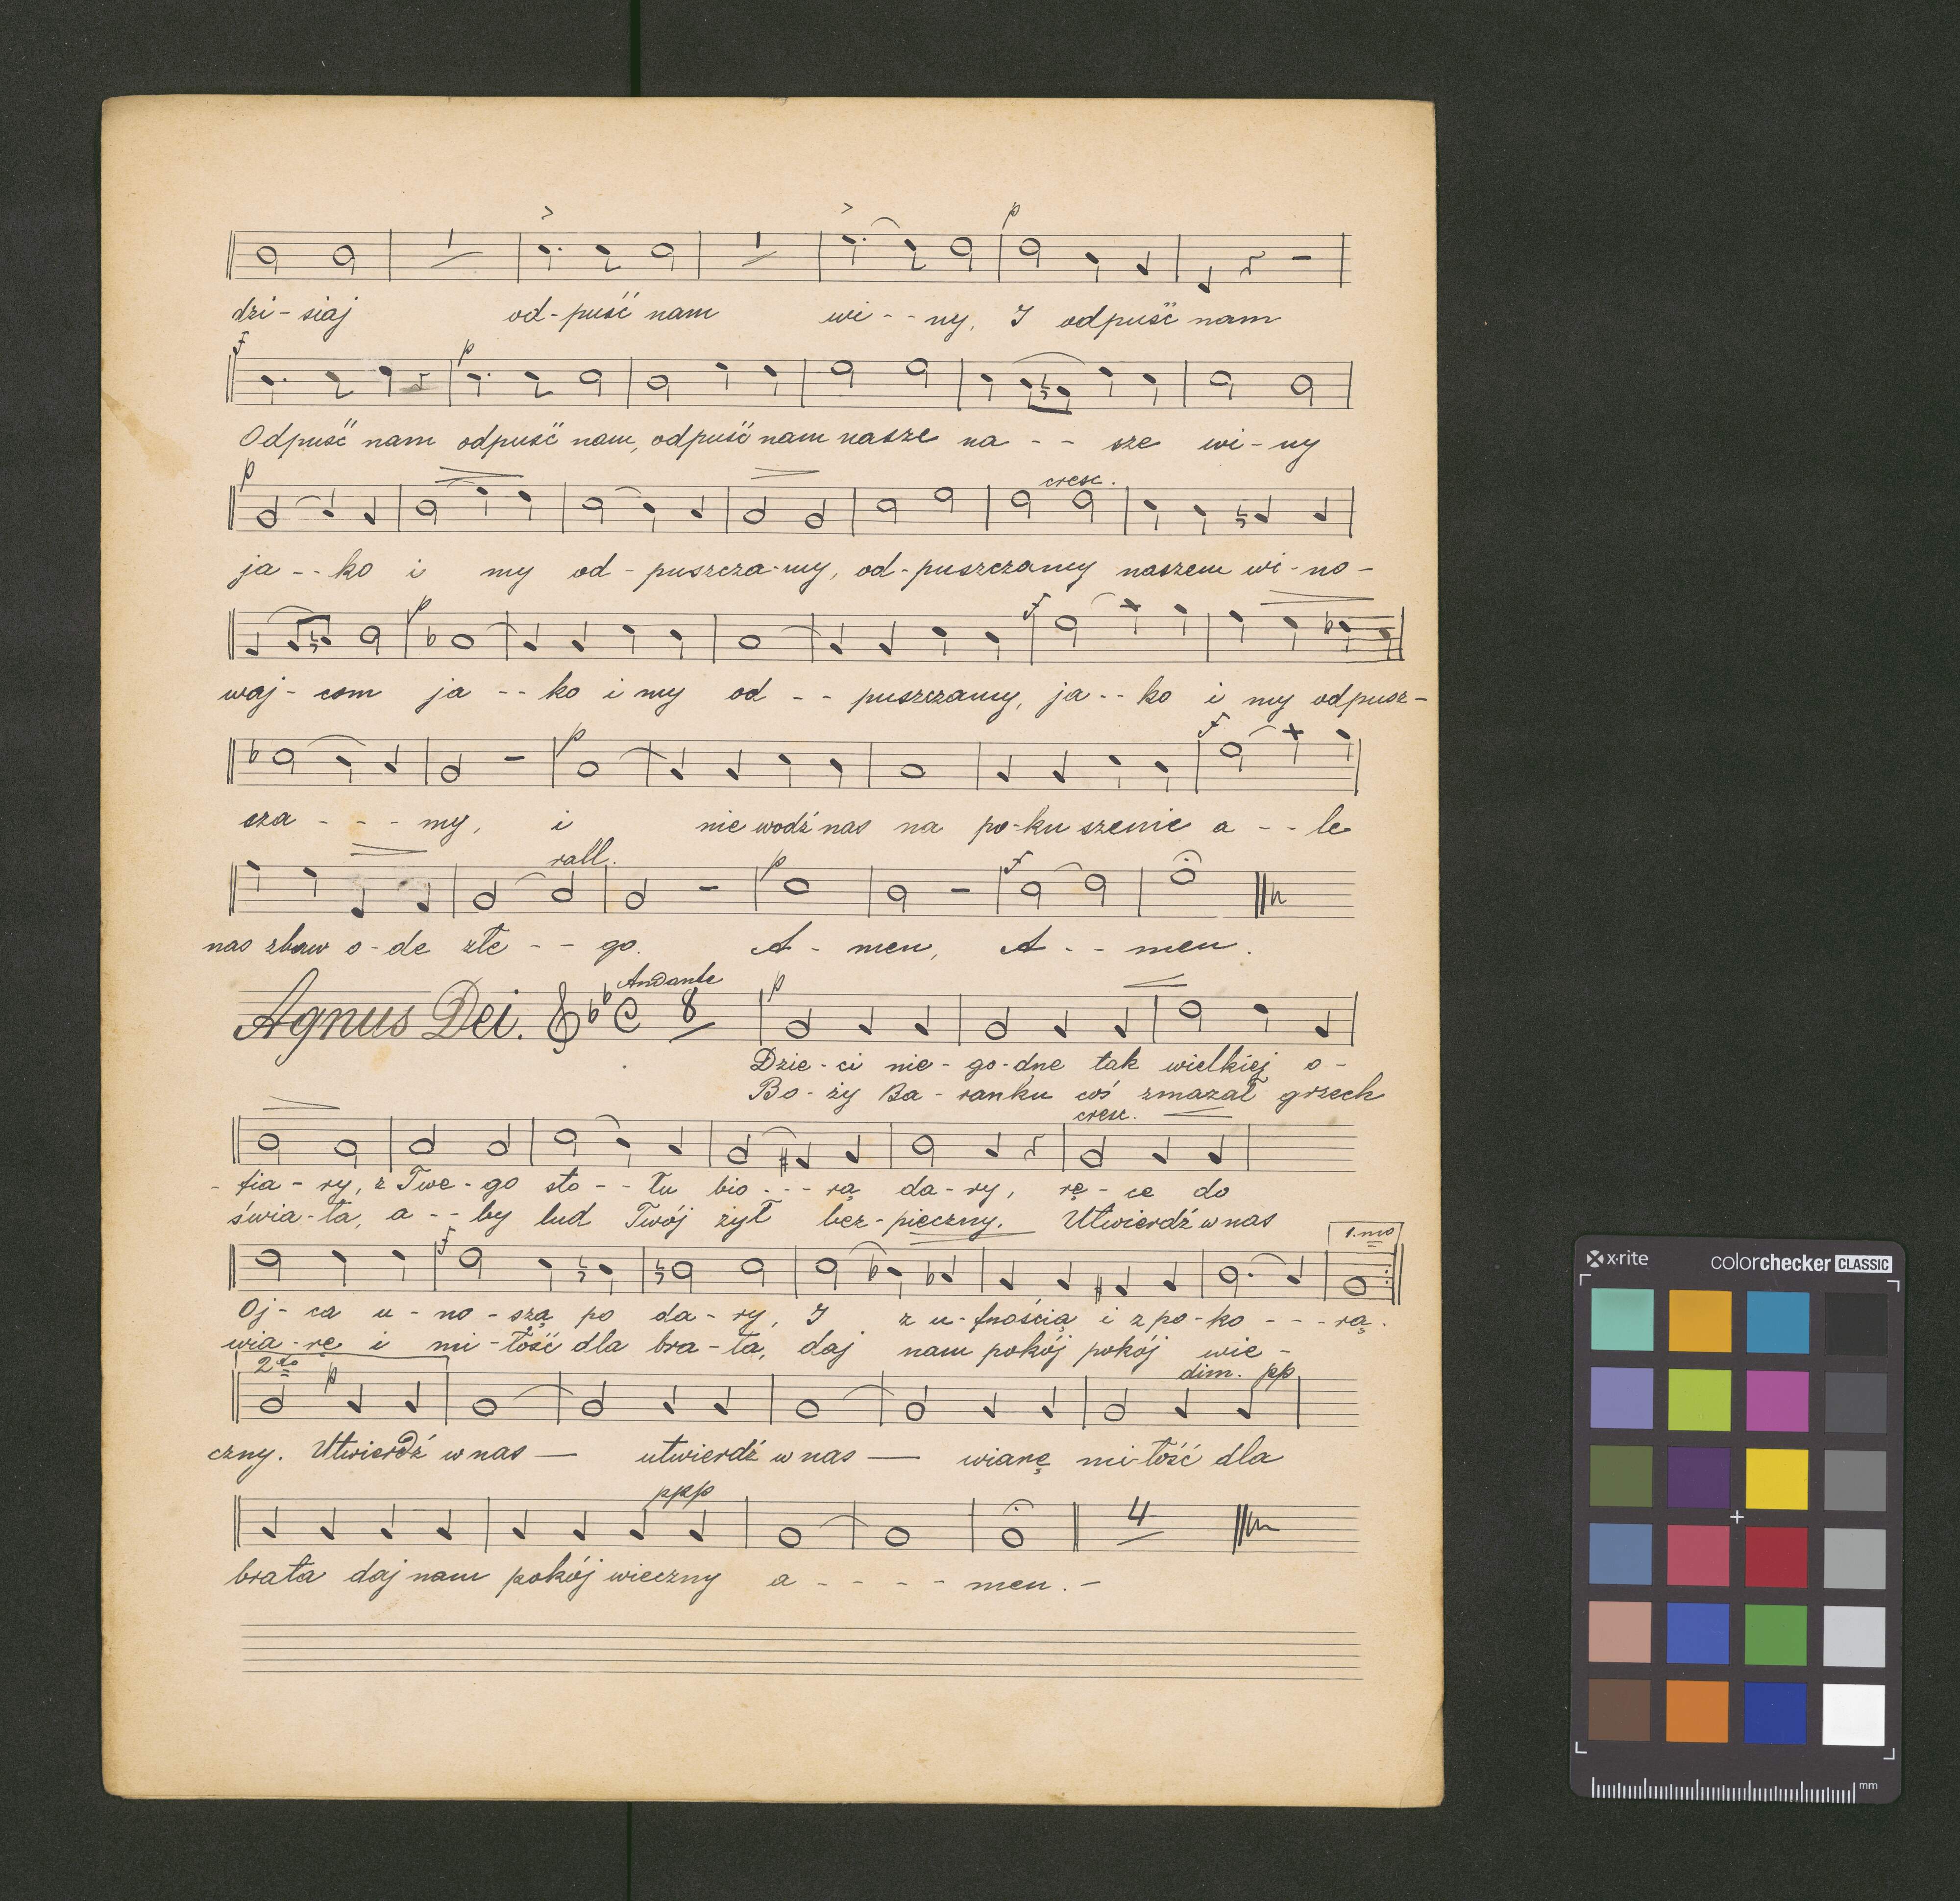 p
dzi - siaj od - puść nam wi - - ny, I odpuść nam
f p
Odpuść nam odpuść nam, odpuść nam nasze na - - sze wi - ny
p cresc.
ja - - ko i my od - puszcza - my, od - puszczamy naszem wi - no -
p f
waj - com ja - - ko i my od - - puszczamy, ja - - ko i my odpusz -
p f
cza - - - my, i nie wodź nas na po - ku szenie a - - le
rall. p f
nas zbaw o - de złe - - go. A - men, A - - men.
Agnus Dei. Andante 8 p
Dzie - ci nie - go - dne tak wielkiej o -
Bo - ży Ba - ranku coś zmazał grzech
cresc.
- fia - ry, z Twe - go sto - - łu bio - - - rą da - ry, rę - ce do
świa - ta, a - - by lud Twój żył bez - pieczny. Utwierdź w nas
f 1. mo
Oj - ca u - no - szą po da - ry, I z u - fnością i z po - ko - - - rą.
wia - rę i mi - łość dla bra - ta, daj nam pokój pokój wie -
2do p dim. pp
czny. Utwierdź w nas — utwierdź w nas — wiarę mi - łość dla
ppp 4
brata daj nam pokój wieczny a - - - - men. -
x·rite colorchecker CLASSIC
mm